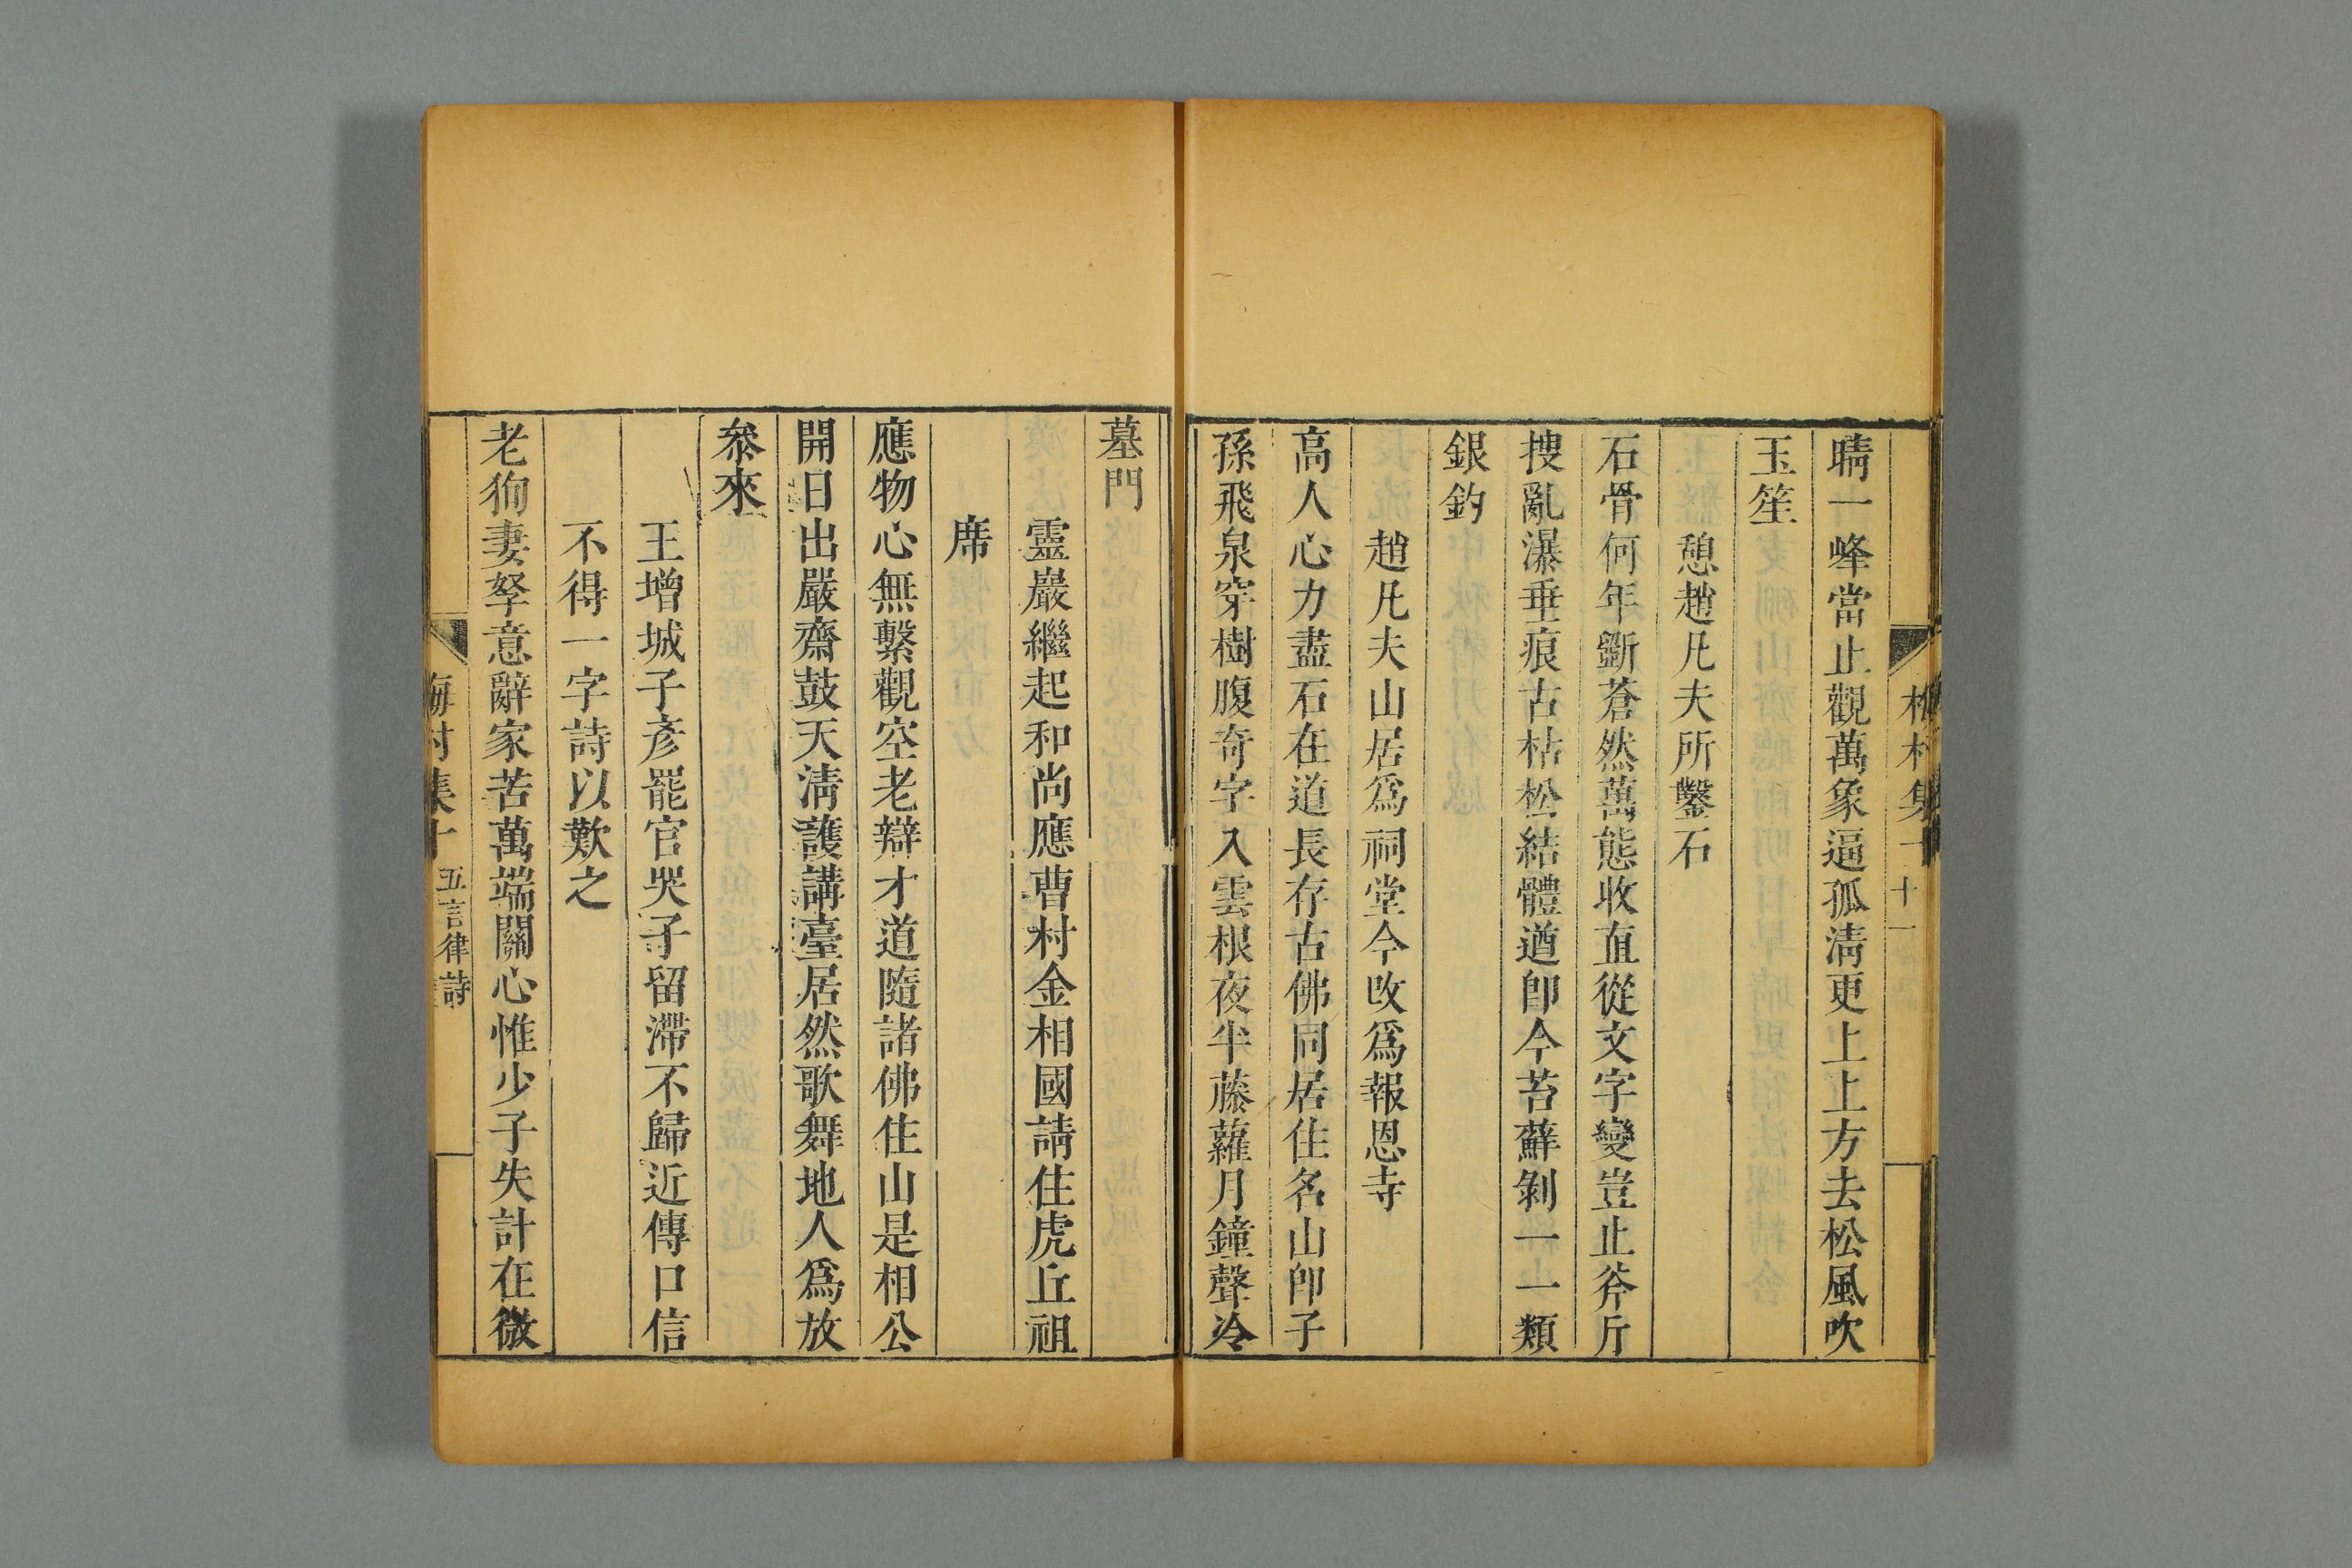 晴一峰當止觀萬象逼孤淸更上上方去松風吹
玉笙
憩趙凡夫所鑿石
石骨何年斵蒼然萬態收直從文字變豈止斧斤
搜亂瀑垂痕古枯松結體遒卽今苔蘚剝一一類
銀鈎
趙凡夫山居爲祠堂今改爲報恩寺
高人心力盡石在道長存古佛同居住名山卽子
孫飛泉穿樹腹奇字入雲根夜半藤蘿月鐘聲冷
墓門
靈巖繼起和尚應曹村金相國請住虎丘祖
席
應物心無繫觀空老辯才道隨諸佛住山是相公
開日出嚴齋鼓天淸護講臺居然歌舞地人爲放
叅來
王增城子彥罷官哭子留滯不歸近傳口信
不得一字詩以歎之
老狥妻孥意辭家苦萬端關心惟少子失計在微
梅村集十 五言律詩